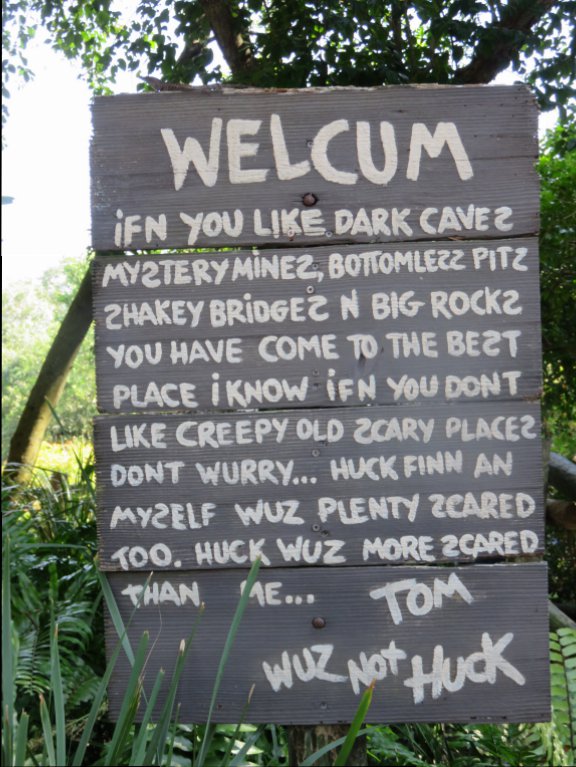 WELCUM
iFN YOU LIKE DARK CAVES
MYSTERY MINES, BOTTOMLESS PITS
SHAKEY BRIDGES N BIG ROCKS
YOU HAVE COME TO THE BEST
PLACE i KNOW iFN YOU DONT
LIKE CREEPY OLD SCARY PLACES
DONT WURRY... HUCK FINN AN
MYSELF WUZ PLENTY SCARED
TOO. HUCK WUZ MORE SCARED
THAN ME... TOM
WUZ NOT HUCK